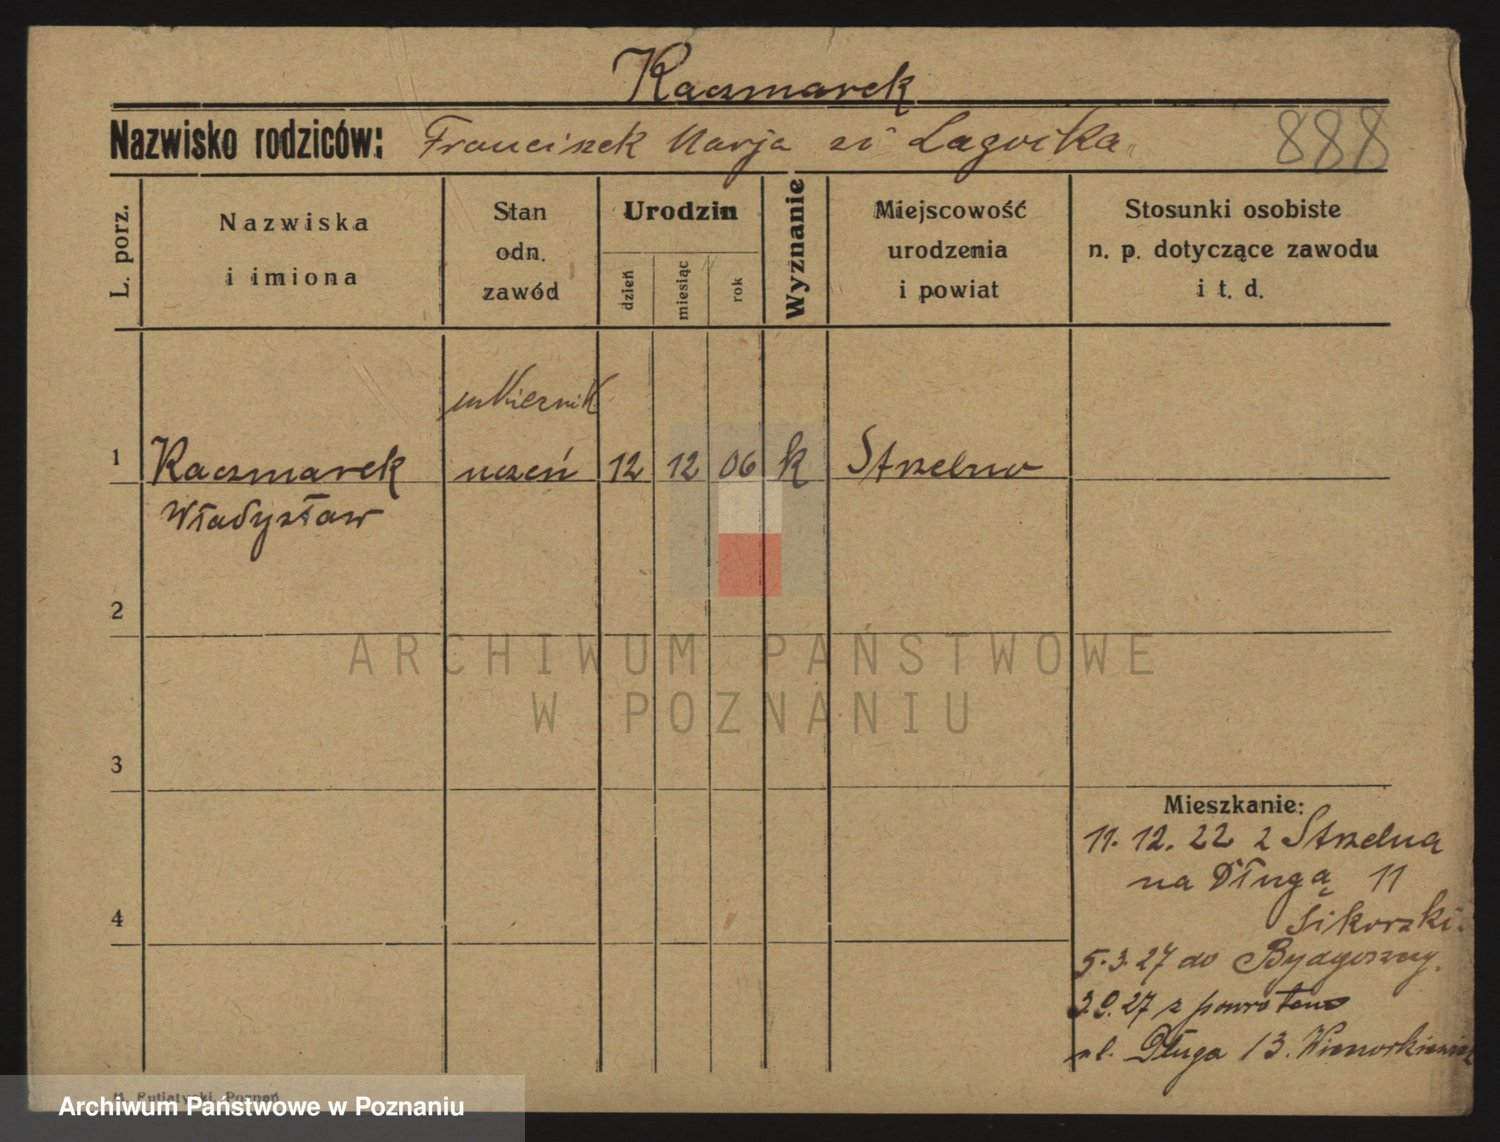 Kaczmarek
Nazwisko rodziców: Franciszek Marja zd
888
L. porz.
Nazwiska
i imiona
Stan
odn.
zawód
Urodzin
dzień
miesiąc
rok
Wyznanie
Miejscowość
urodzenia
i powiat
Stosunki osobiste
n. p. dotyczące zawodu
i t. d.
cukiernik
1 Kaczmarek uczeń 12 12 06 k Strzelno
Władysław
2
ARCHIWUM PAŃSTWOWE
W POZNANIU
3
Mieszkanie:
11. 12. 22 z Strzelna
na Długą 11
4
Sikorski.
5.3.27 do Bydgoszczy.
3.9.27 z powrotem
ul. Długa 13.
Poznań
Archiwum Państwowe w Poznaniu